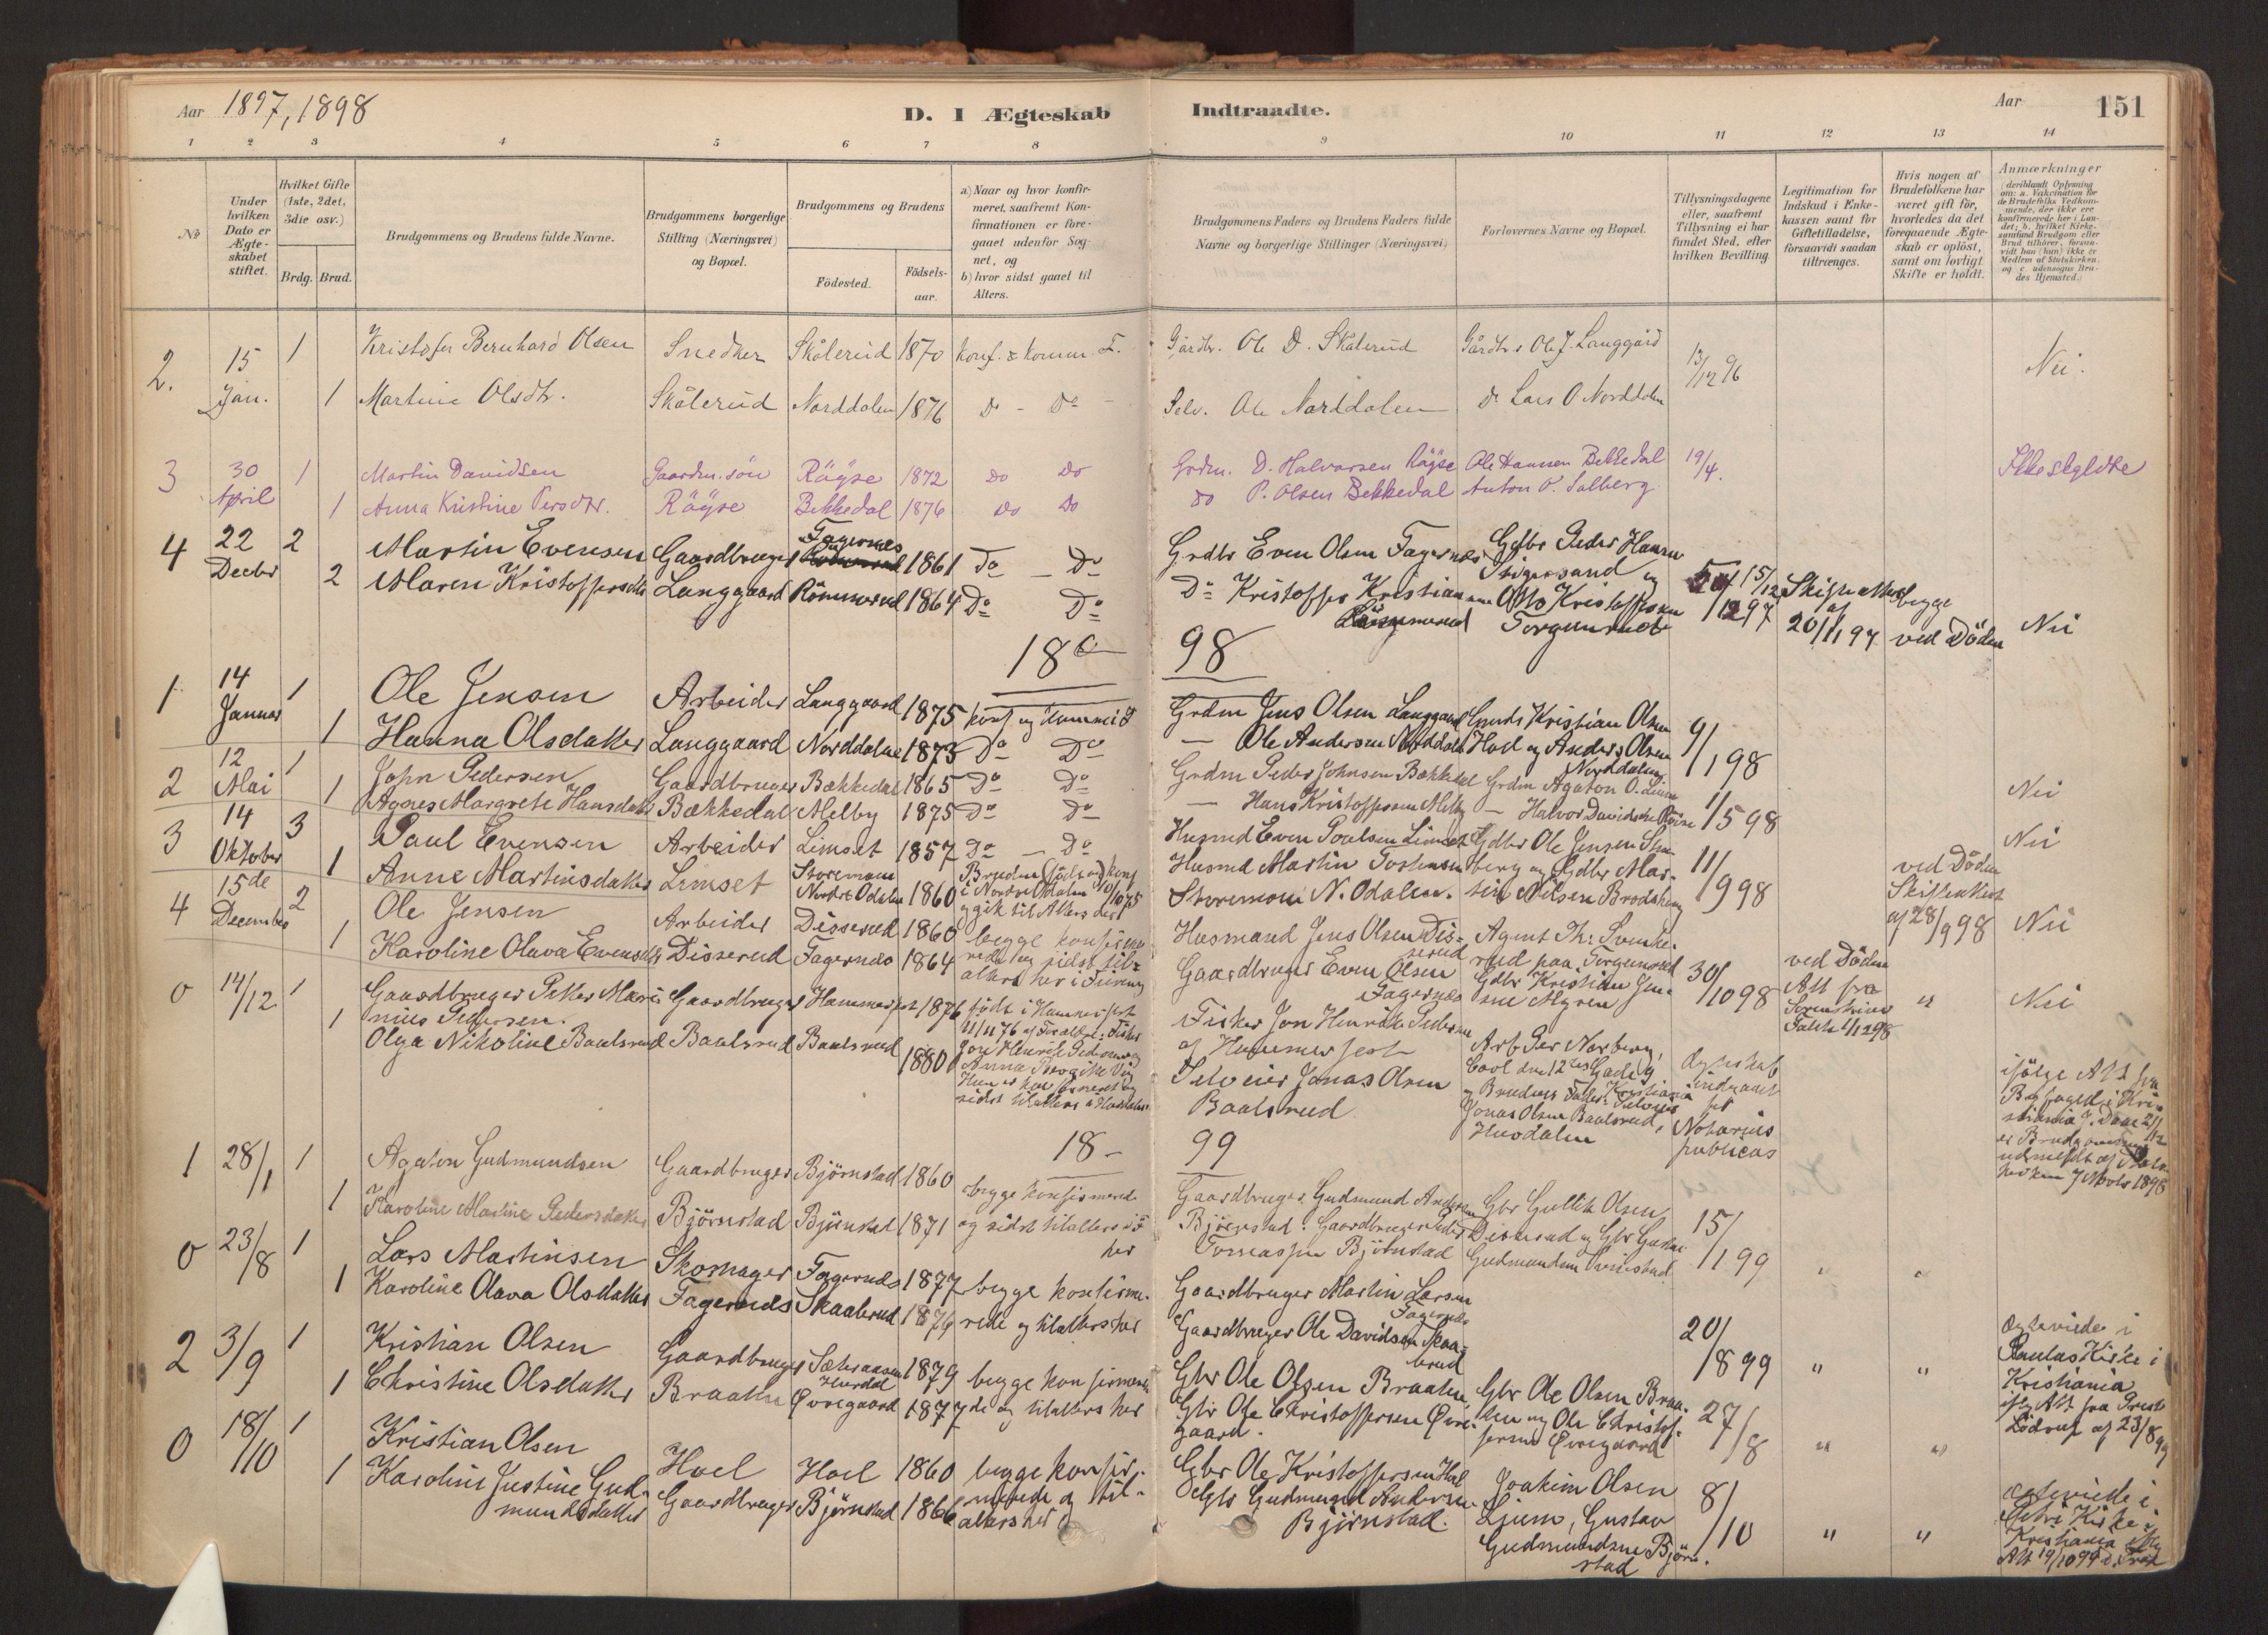 Aar 1897, 1898
D. I Ægteskab Indtraadte.
Aar 151
1 2 3 4 5 6 7 8 9 10 11 12 13 14
No
Under hvilken Dato er Ægteskabet stiftet.
Hvilket Gifte (1ste, 2det, 3die osv.)
Brdg. Brud.
Brudgommens og Brudens fulde Navne.
Brudgommens borgerlige Stilling (Næringsvei) og Bopæl.
Brudgommens og Brudens
Födested. Födselsaar.
a) Naar og hvor konfirmeret, saafremt Konfirmationen er foregaaet udenfor Sognet, og
b) hvor sidst gaaet til Alters.
Brudgommens Faders og Brudens Faders fulde Navne og borgerlige Stillinger (Næringsvei)
Forlovernes Navne og Bopæl.
Tillysningsdagene eller, saafremt Tillysning ei har fundet Sted, efter hvilken Bevilling.
Legitimation for Indskud i Enkekassen samt for Giftetilladelse, forsaavidt saadan tiltrænges.
Hvis nogen af Brudefolkene har været gift før, hvorledes da det foregaaende Ægteskab er oplöst, samt om lovligt Skifte er holdt.
Anmærkninger (deriblandt Oplysning om: a. Vakcination for de Brudefolks Vedkommende, der ikke ere konfirmerede her i Landet; b. hvilket Kirkesamfund Brudgom eller Brud tilhörer, forsaavidt han (hun) ikke er Medlem af Statskirken, og c. udensogns Brudes Hjemsted.)
2. 15 1 Kristofer Bernhard Olsen Snedker Skålerud 1870 Konf. & komm. F. Gårdbr. Ole D. Skålerud Gårdbr. Ole J. Langgård 13/12 96 Nei.
Jan. 1 Martine Olsdtr. Skålerud Norddalen 1876 Do - Do Selv. Ole Norddalen Do Lars O Norddalen
3 30 1 Martin Davidsen Gaardm. sön Röyse 1872 Do Do Grdm. D. Halvorsen Röyse Ole Hansen Bekkedal 19/4. Ikke skyldte
April 1 Anna Kristine Persdtr. Röyse Bekkedal 1876 Do Do do P. Olsen Bekkedal Anton P. Solberg
4 22 2 Martin Evensen Gaardbruger Fagernes 1861 Do - Do Grdbr Even Olsen Fagernes Gdbr Peder Hansen
Decbr 2 Maren Kristoffersdtr Langgaard Römmerud 1864 Do Do Do Kristoffer Kristiansen Römmerud Stigersand og Otto Kristoffersen Torgunrud 15/12 97 Skifteattest af 20/11 97 begge ved Döden Nei
18 98
1 14 1 Ole Jensen Arbeider Langgaard 1875 Konf og komm i F Grdm Jens Olsen Langgaard Grdb Kristian Olsen 9/1 98
Januar 1 Hanna Olsdatter Langgaard Norddalen 1873 Do Do - Ole Andersen Norddalen Hoel og Anders Olsen Norddalen
2 12 1 John Pedersen Gaardbruger Bækkedal 1865 Do Do Grdm Peder Johnsen Bækkedal Grdm Agaton O. 1/5 98 Nei
Mai 1 Agnes Margrete Hansdatter Bækkedal Melby 1875 Do Do - Hans Kristoffersen Melby - Halvor Davidsen Röise
3 14 3 Paul Evensen Arbeider Limset 1857 Do - Do Husmd Even Poulsen Limset Gdbr Ole Jensen 11/9 98 ved Döden Skifteattest af 28/9 98 Nei
Oktober 1 Anne Martinsdatter Limset Storemoen Nordre Odalen 1860 Bruden födt og konf i Nordre Odalen 10/10 75 og gik til Alters der Husmd Martin Storemoen N. Odalen. berg og Gdbr Martin Nilsen
4 15de 2 Ole Jensen Arbeider Disserud 1860 begge konfirmerede og sidst tilalters her i Husmand Jens Olsen Disserud Agent Th: rud paa Torgunrud 30/10 98 ved Döden Att fra 1/12 98 Nei
December 1 Karoline Olava Evensdtr Disserud Fagernes 1864 Gaardbruger Even Olsen Fagernes Gdbr Kristian Jensen Myren
0 14/12 1 Gaardbruger Peter Marinius Pettersen. Gaardbruger Hammerfest 1876 födt i Hammerfest 11/11 76 af Forældre: Fisker Jon Henrik Pedersen og Anna Fisker Jon Henrik Pedersen af Hammerfest Arb Per Norberg, " Nei
1 Olga Nikoline Baalsrud Baalsrud Baalsrud 1880 Hun er konfirmeret og sidst tilalters i Hurdalen Selveier Jonas Olsen Baalsrud og Brudens Fader: Selveier Jonas Olsen Baalsrud, Hurdalen Ægteskab indgaaet for Notarius publicus ifölge Att fra Byfoged i Kristiania
18 - 99
1 28/1 1 Agaton Gudmundsen Gaardbruger Björnstad 1860 begge konfirmerede og sidst tilalters her Gaardbruger, Gudmund Andersen Björnstad. Gbr Gullik Olsen, Disserud og Gbr Gustav Gudmundsen 15/1 99 " "
1 Karoline Martine Pedersdatter Björnstad Björnstad 1871 Gaardbruger Peder Tomassen Björnstad
0 23/8 1 Lars Martinsen Skomager Fagernes 1877 begge konfirmerede og tilalters her Gaardbruger Martin Larsen Fagernes 20/8 99 " " ægteviede i Paulas Kirke i Kristiania iflg Att fra Prest af 23/8 99
1 Karoline Olava Olsdatter Fagernes Skaalerud 1876 Gaardbruger Ole Davidsen Skaalerud
2 3/9 1 Kristian Olsen Gaardbruger Sæteraasen Hurdal 1879 begge konfirmerede og tilalters her Gbr Ole Olsen Braaten, Gbr Ole Olsen Braaten og Ole Christoffersen Övregaard 27/8 " "
1 Christine Olsdatter Braaten Övregaard 1877 Gbr Ole Christoffersen Övregaard.
0 18/10 1 Kristian Olsen Hoel Hoel 1860 begge konfirmerede og tilalters her Gbr Ole Kristoffersen Hoel Joakim Olsen Ljum, Gustav Gudmundsen Björnstad 8/10 " " ægteviede i Petri Kirke i Kristiania iflg Att 19/10 99
1 Karoline Justine Gudmundsdatter Gaardbruger Björnstad 1866 Gbr Gudmund Andersen Björnstad.